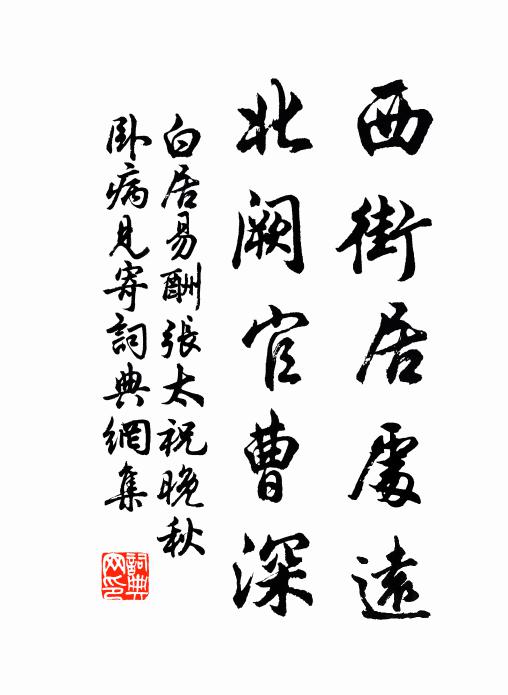 西街居處遠
北闕官曹深
白居易酬張太祝晚秋
臥病見寄詞典網集
詞典網印